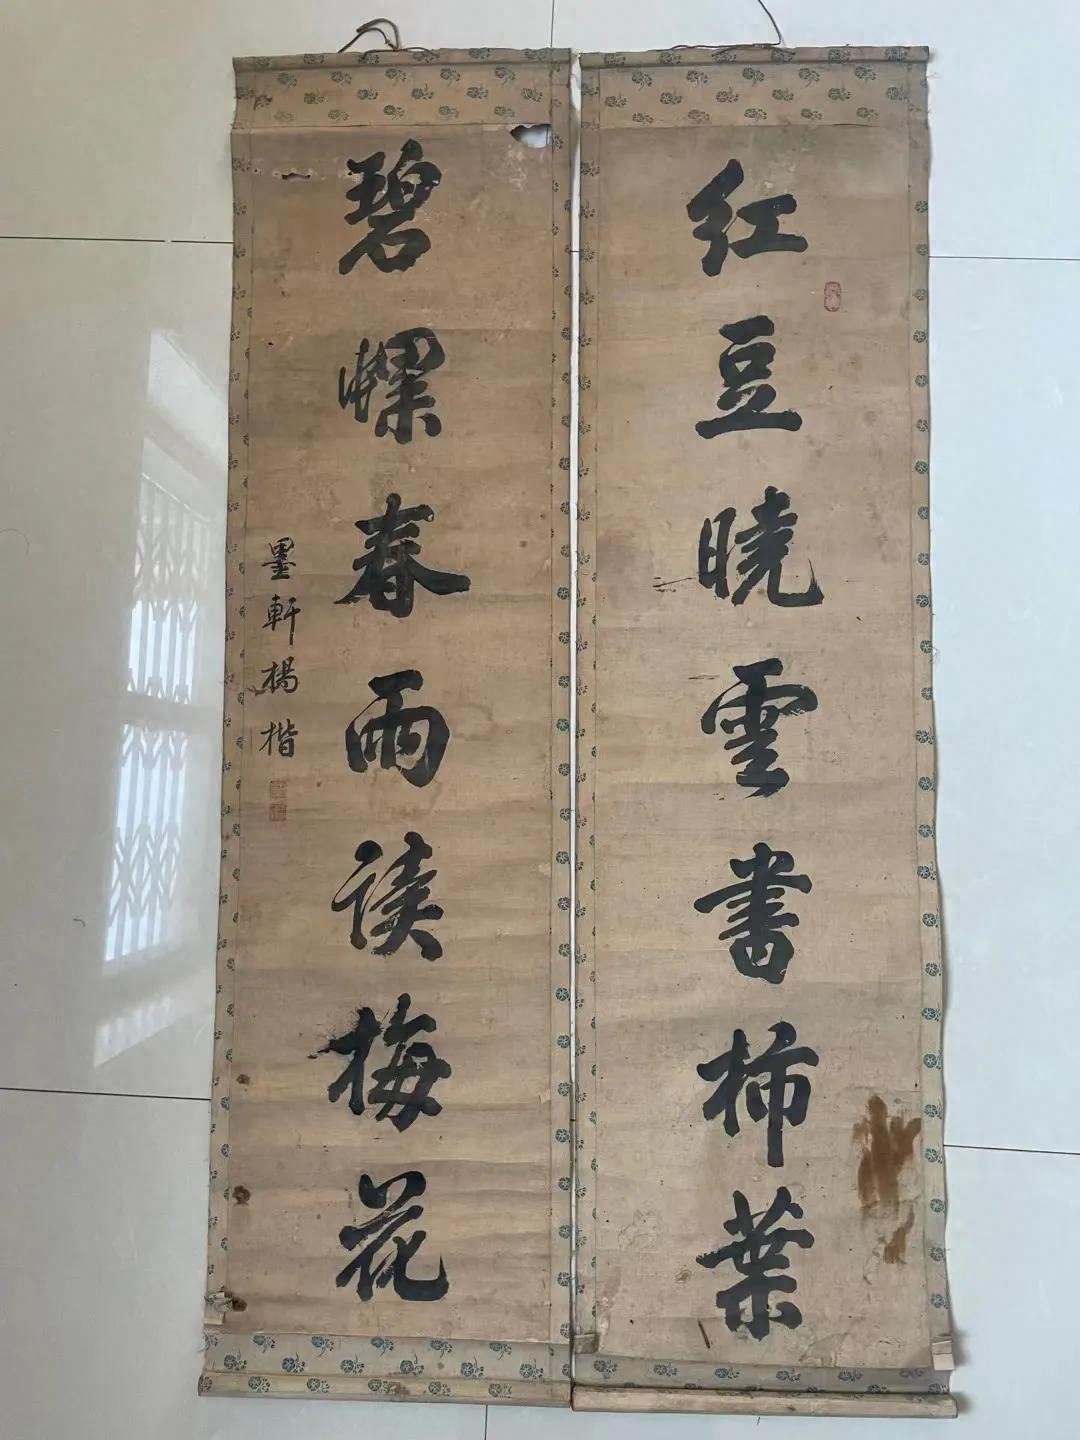 红豆曉雲書柿葉
碧螺春雨读梅花
墨軒楊楷